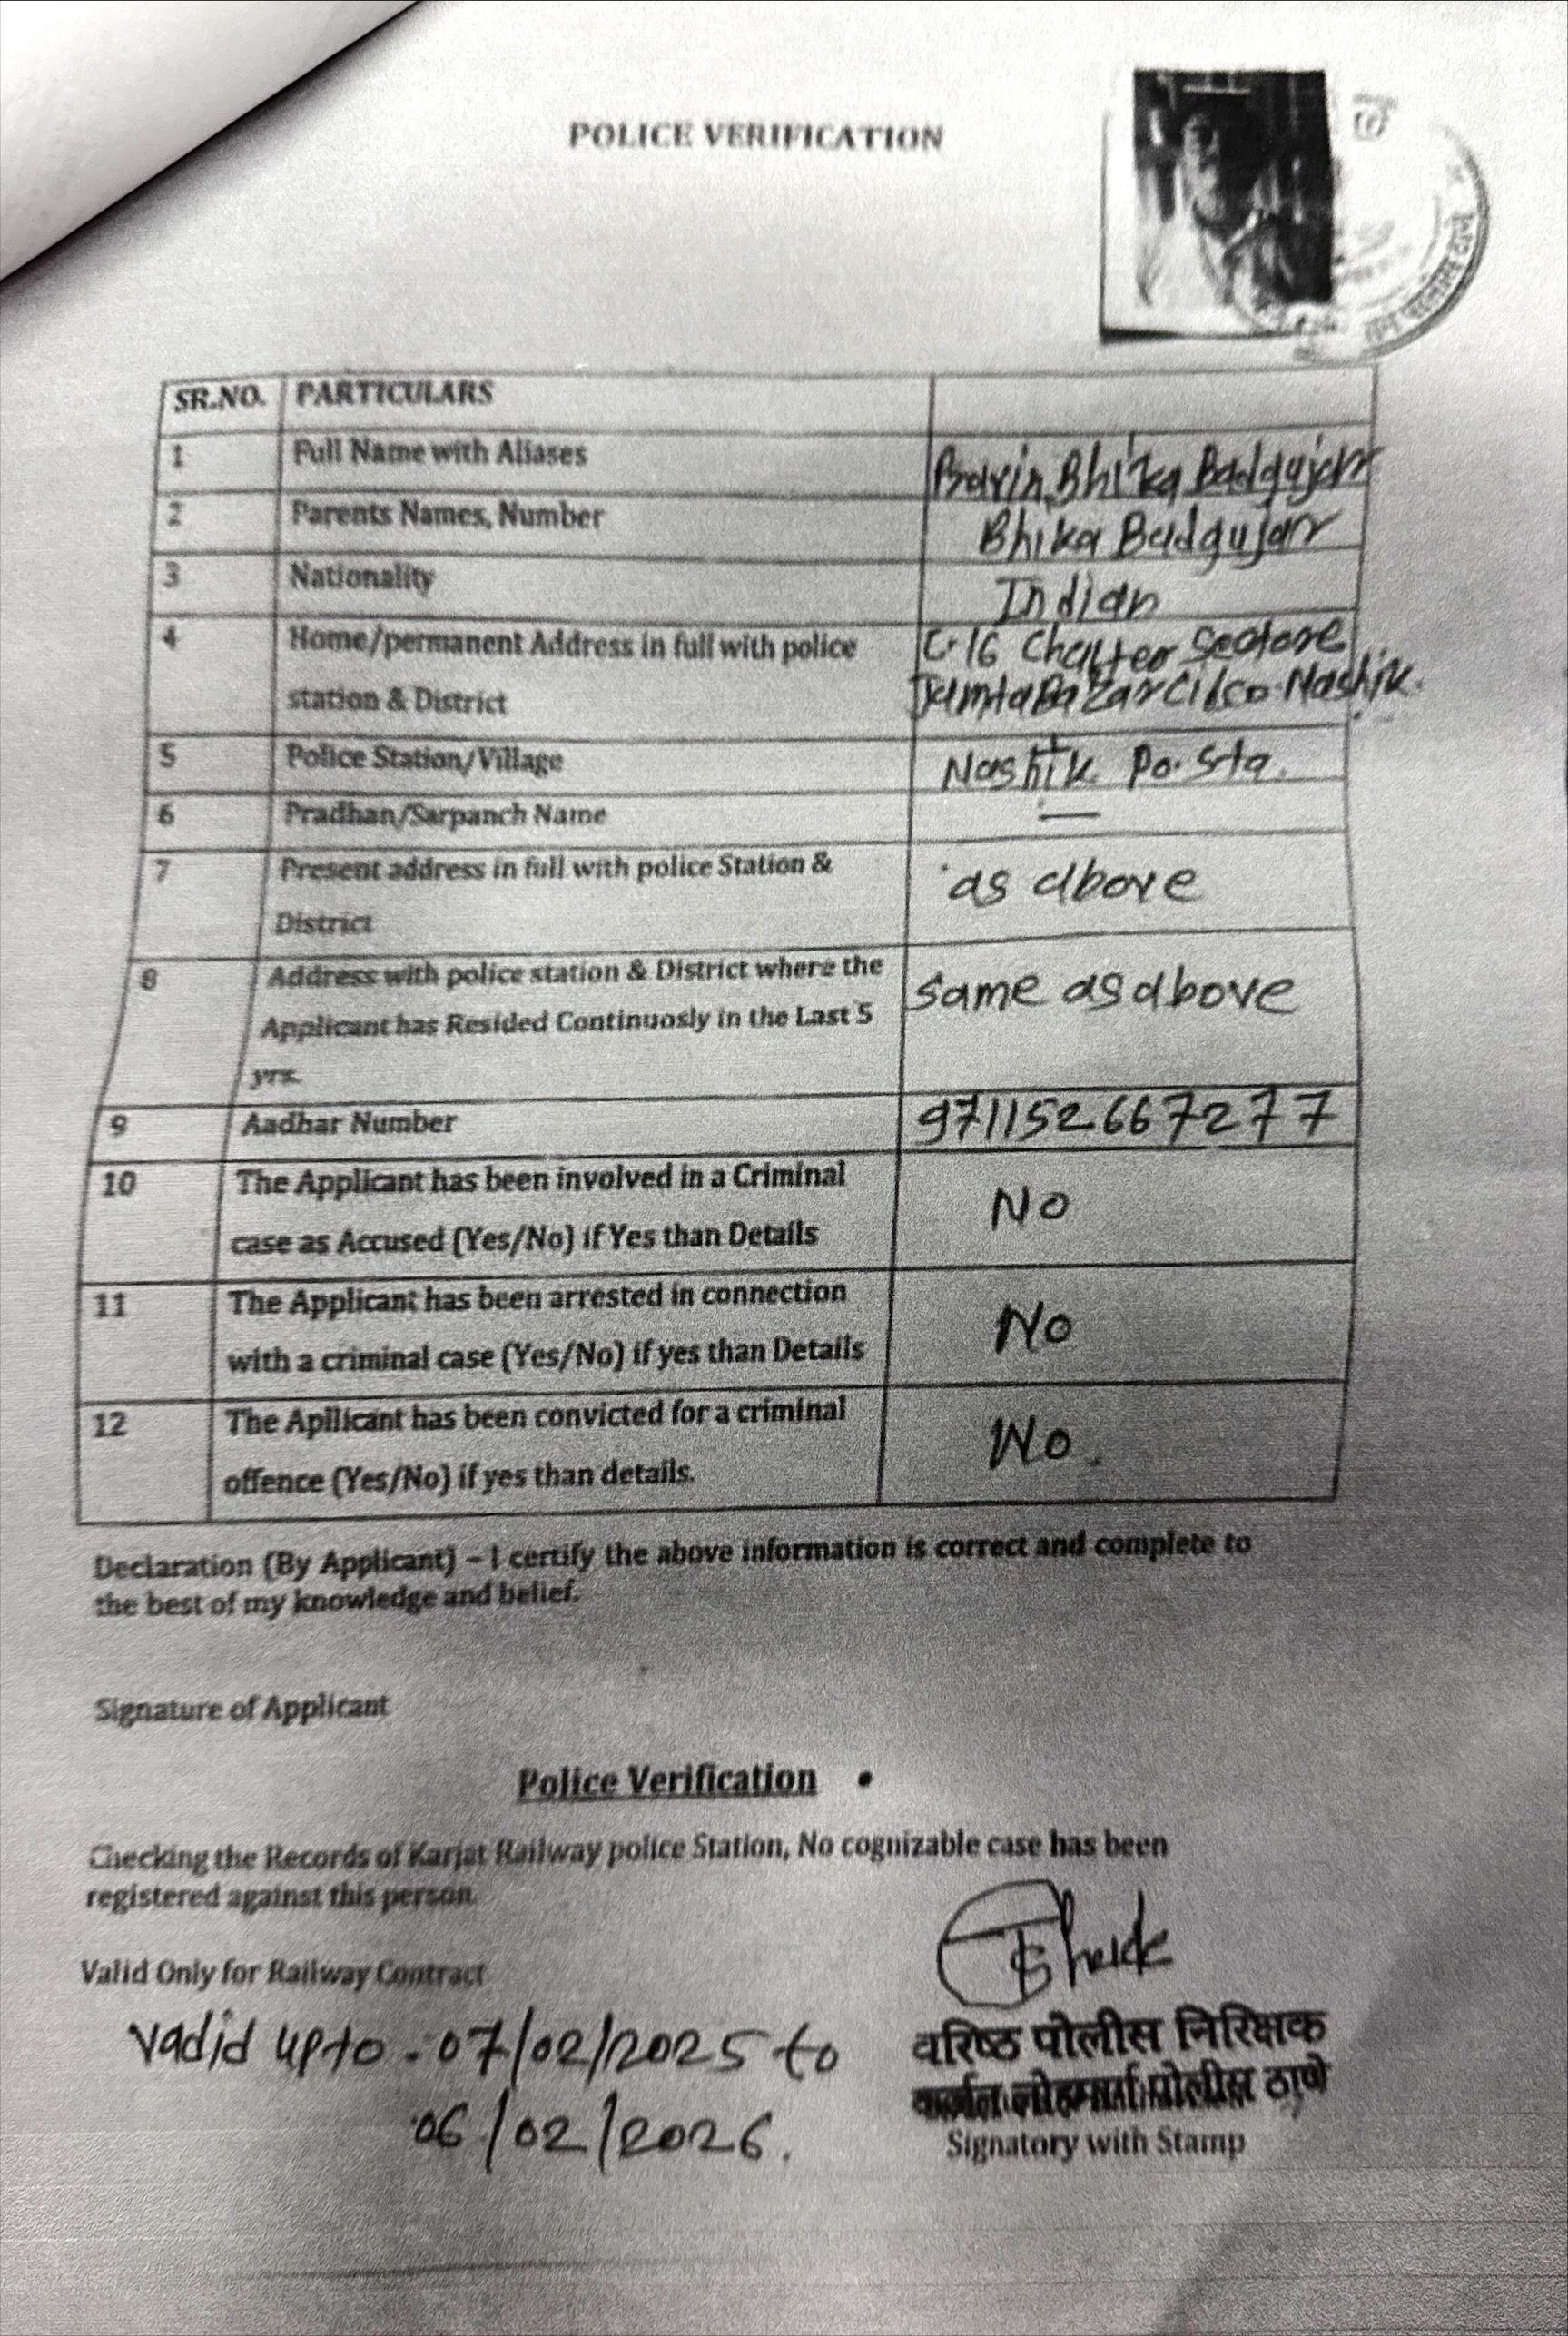 POLICE VERIFICATION
SR.NO. PARTICULARS
1 Full Name with Aliases Pravin Bhika Badgujar
2 Parents Names, Number Bhika Badgujar
3 Nationality Indian
4 Home/permanent Address in full with police station & District C-16 Nashik.
5 Police Station/Village Nashik Po. Sta.
6 Pradhan/Sarpanch Name —
7 Present address in full with police Station & District as above
8 Address with police station & District where the
Applicant has Resided Continuosly in the Last 5
yrs. same as above
9 Aadhar Number 971152667277
10 The Applicant has been involved in a Criminal
case as Accused (Yes/No) if Yes than Details No
11 The Applicant has been arrested in connection
with a criminal case (Yes/No) if yes than Details No
12 The Apllicant has been convicted for a criminal
offence (Yes/No) if yes than details. No.
Declaration (By Applicant) – I certify the above information is correct and complete to
the best of my knowledge and belief.
Signature of Applicant
Police Verification
Checking the Records of Karjat Railway police Station, No cognizable case has been
registered against this person.
Valid Only for Railway Contract
vadid upto - 07/02/2025 to
06/02/2026.
वरिष्ठ पोलीस निरिक्षक
कर्जत लोहमार्ग पोलीस ठाणे
Signatory with Stamp